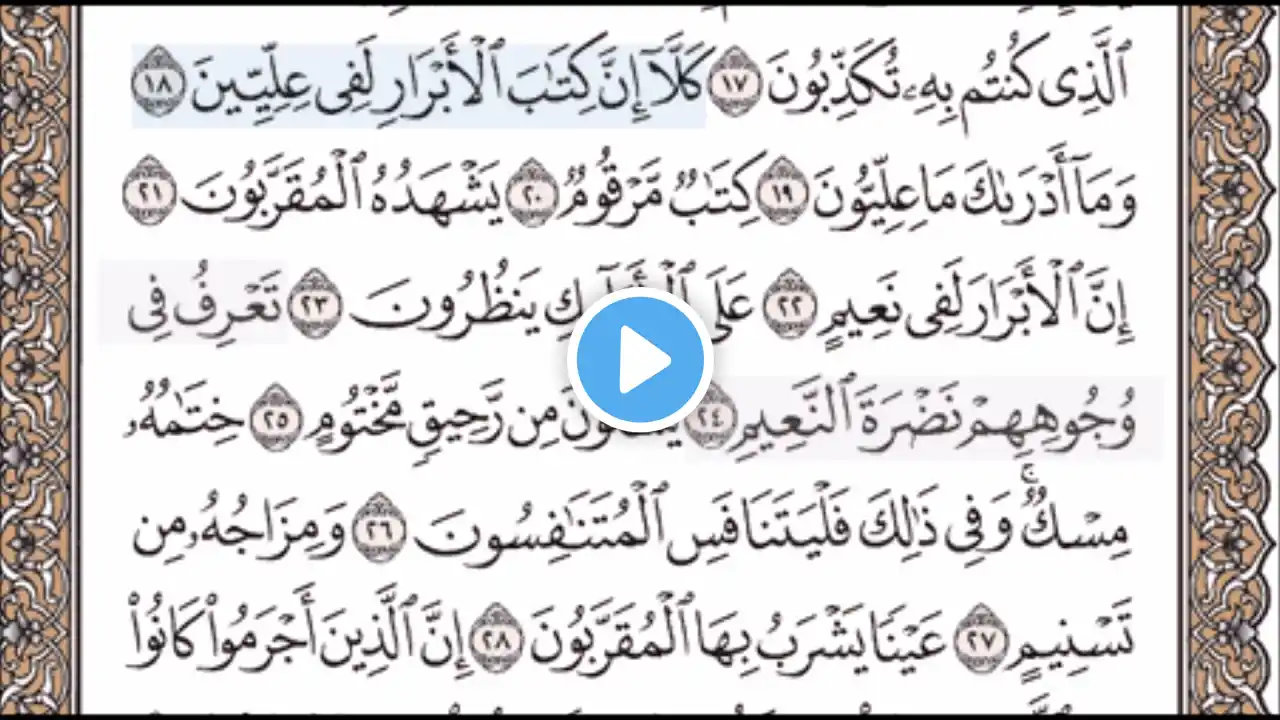 ٱلَّذِى كُنتُم بِهِۦ تُكَذِّبُونَ ١٧ كَلَّآ إِنَّ كِتَٰبَ ٱلْأَبْرَارِ لَفِى عِلِّيِّينَ ١٨
وَمَآ أَدْرَىٰكَ مَا عِلِّيُّونَ ١٩ كِتَٰبٌ مَّرْقُومٌ ٢٠ يَشْهَدُهُ ٱلْمُقَرَّبُونَ ٢١
إِنَّ ٱلْأَبْرَارَ لَفِى نَعِيمٍ ٢٢ عَلَى يَنظُرُونَ ٢٣ تَعْرِفُ فِى
وُجُوهِهِمْ نَضْرَةَ ٱلنَّعِيمِ ٢٤ مِن رَّحِيقٍ مَّخْتُومٍ ٢٥ خِتَٰمُهُۥ
مِسْكٌ ۚ وَفِى ذَٰلِكَ فَلْيَتَنَافَسِ ٱلْمُتَنَٰفِسُونَ ٢٦ وَمِزَاجُهُۥ مِن
تَسْنِيمٍ ٢٧ عَيْنًا يَشْرَبُ بِهَا ٱلْمُقَرَّبُونَ ٢٨ إِنَّ ٱلَّذِينَ أَجْرَمُوا۟ كَانُوا۟